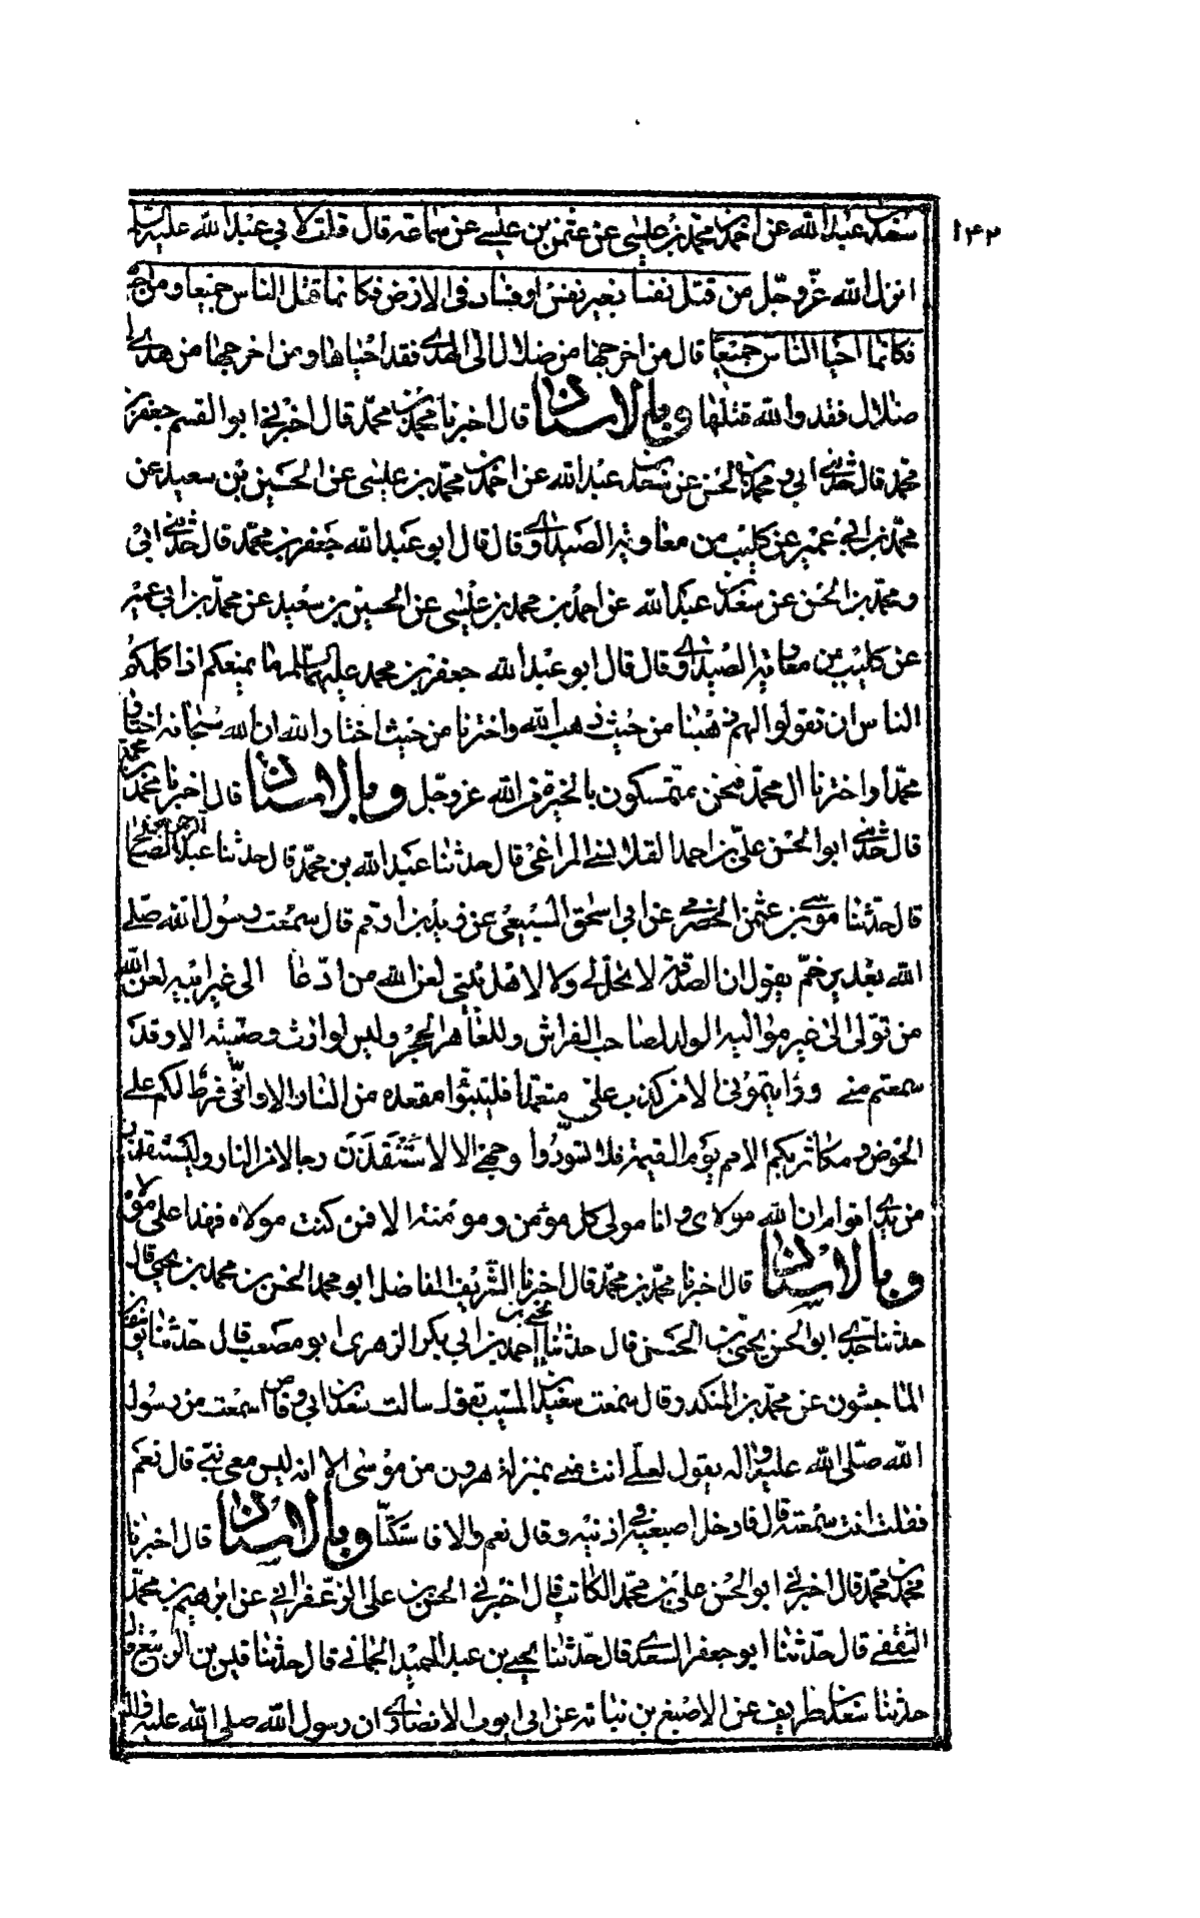 ١٤٢
سعد بن عبد الله عن احمد بن محمد بن عيسى عن عثمن بن عيسى عن سماعة قال قلت لابي عبد الله عليه السلام
انزل الله عز وجل من قتل نفسا بغير نفس او فساد في الارض فكانما قتل الناس جميعا ومن احيا
فكانما احيا الناس جميعا قال من اخرجها من ضلال الى الهدى فقد احياها ومن اخرجها من هدى الى
ضلال فقد والله قتلها وبالاسناد قال اخبرنا محمد بن محمد قال اخبرني ابو القسم جعفر بن
محمد قال حدثني ابي و محمد بن الحسن عن سعد بن عبد الله عن احمد بن محمد بن عيسى عن الحسين بن سعيد عن
محمد بن ابي عمير عن كليب بن معاوية الصيداوي قال قال ابو عبد الله جعفر بن محمد قال حدثني ابي
ومحمد بن الحسن عن سعد بن عبد الله عن احمد بن محمد بن عيسى عن الحسين بن سعيد عن محمد بن ابي عمير
عن كليب بن معاوية الصيداوي قال قال ابو عبد الله جعفر بن محمد عليهما السلم ما يمنعكم اذا كلمكم
الناس ان تقولوا لهم ذهبنا من حيث ذهب الله واخترنا من حيث اختار الله ان الله سبحانه اختار
محمدا واخترنا ال محمد فنحن متمسكون بالخيرة من الله عز وجل وبالاسناد قال اخبرنا محمد بن محمد
قال حدثني ابو الحسن علي بن احمد القلانسي المراغي قال حدثنا عبد الله بن محمد قال حدثنا عبد الرحمن بن صالح
قال حدثنا موسى بن عثمن الحضرمي عن ابي اسحق السبيعي عن زيد بن ارقم قال سمعت رسول الله صلى
الله بغدير خم يقول ان الصدقة لا تحل لي ولا لاهل بيتي لعن الله من ادعا الى غير ابيه لعن الله
من تولى الى غير مواليه الولد لصاحب الفراش وللعاهر الحجر وليس لوارث وصيته الا وقد
سمعتم مني ورايتموني الا من كذب علي متعمدا فليتبوا مقعده من النار الا واني فرط لكم على
الحوض و مكاثر بكم الامم يوم القيمة فلا تسودوا وجهي الا لاستنقذن رجالا من النار وليستنقذن
من يدي اقوام ان الله مولاي وانا مولى كل مؤمن ومومنة الا فمن كنت مولاه فهذا علي مولاه
وبالاسناد قال اخبرنا محمد بن محمد قال اخبرنا الشريف الفاضل ابو محمد الحسن بن محمد بن يحيى قال
حدثنا جدي ابو الحسن يحيى بن الحسن قال حدثنا احمد بن ابي بكر الزهري ابو مصعب قال حدثنا يوسف بن
الماجشون عن محمد بن المنكدر قال سمعت سعيد بن المسيب يقول سالت سعد بن ابي وقاص اسمعت من رسول
الله صلى الله عليه واله يقول لعلي انت مني بمنزلة هرون من موسى الا انه ليس معي نبي قال نعم
فقلت انت سمعته قال فادخل اصبعيه في اذنيه وقال نعم والا فاستكتا وبالاسناد قال اخبرنا
محمد بن محمد قال اخبرني ابو الحسن علي بن محمد الكاتب قال اخبرني الحسن بن علي الزعفراني عن ابرهيم بن محمد
الثقفي قال حدثنا ابو جعفر السعدي قال حدثنا يحيى بن عبد الحميد الحماني قال حدثنا قيس بن الربيع قال
حدثنا سعد بن طريف عن الاصبغ بن نباتة عن ابي ايوب الانصاري ان رسول الله صلى الله عليه واله